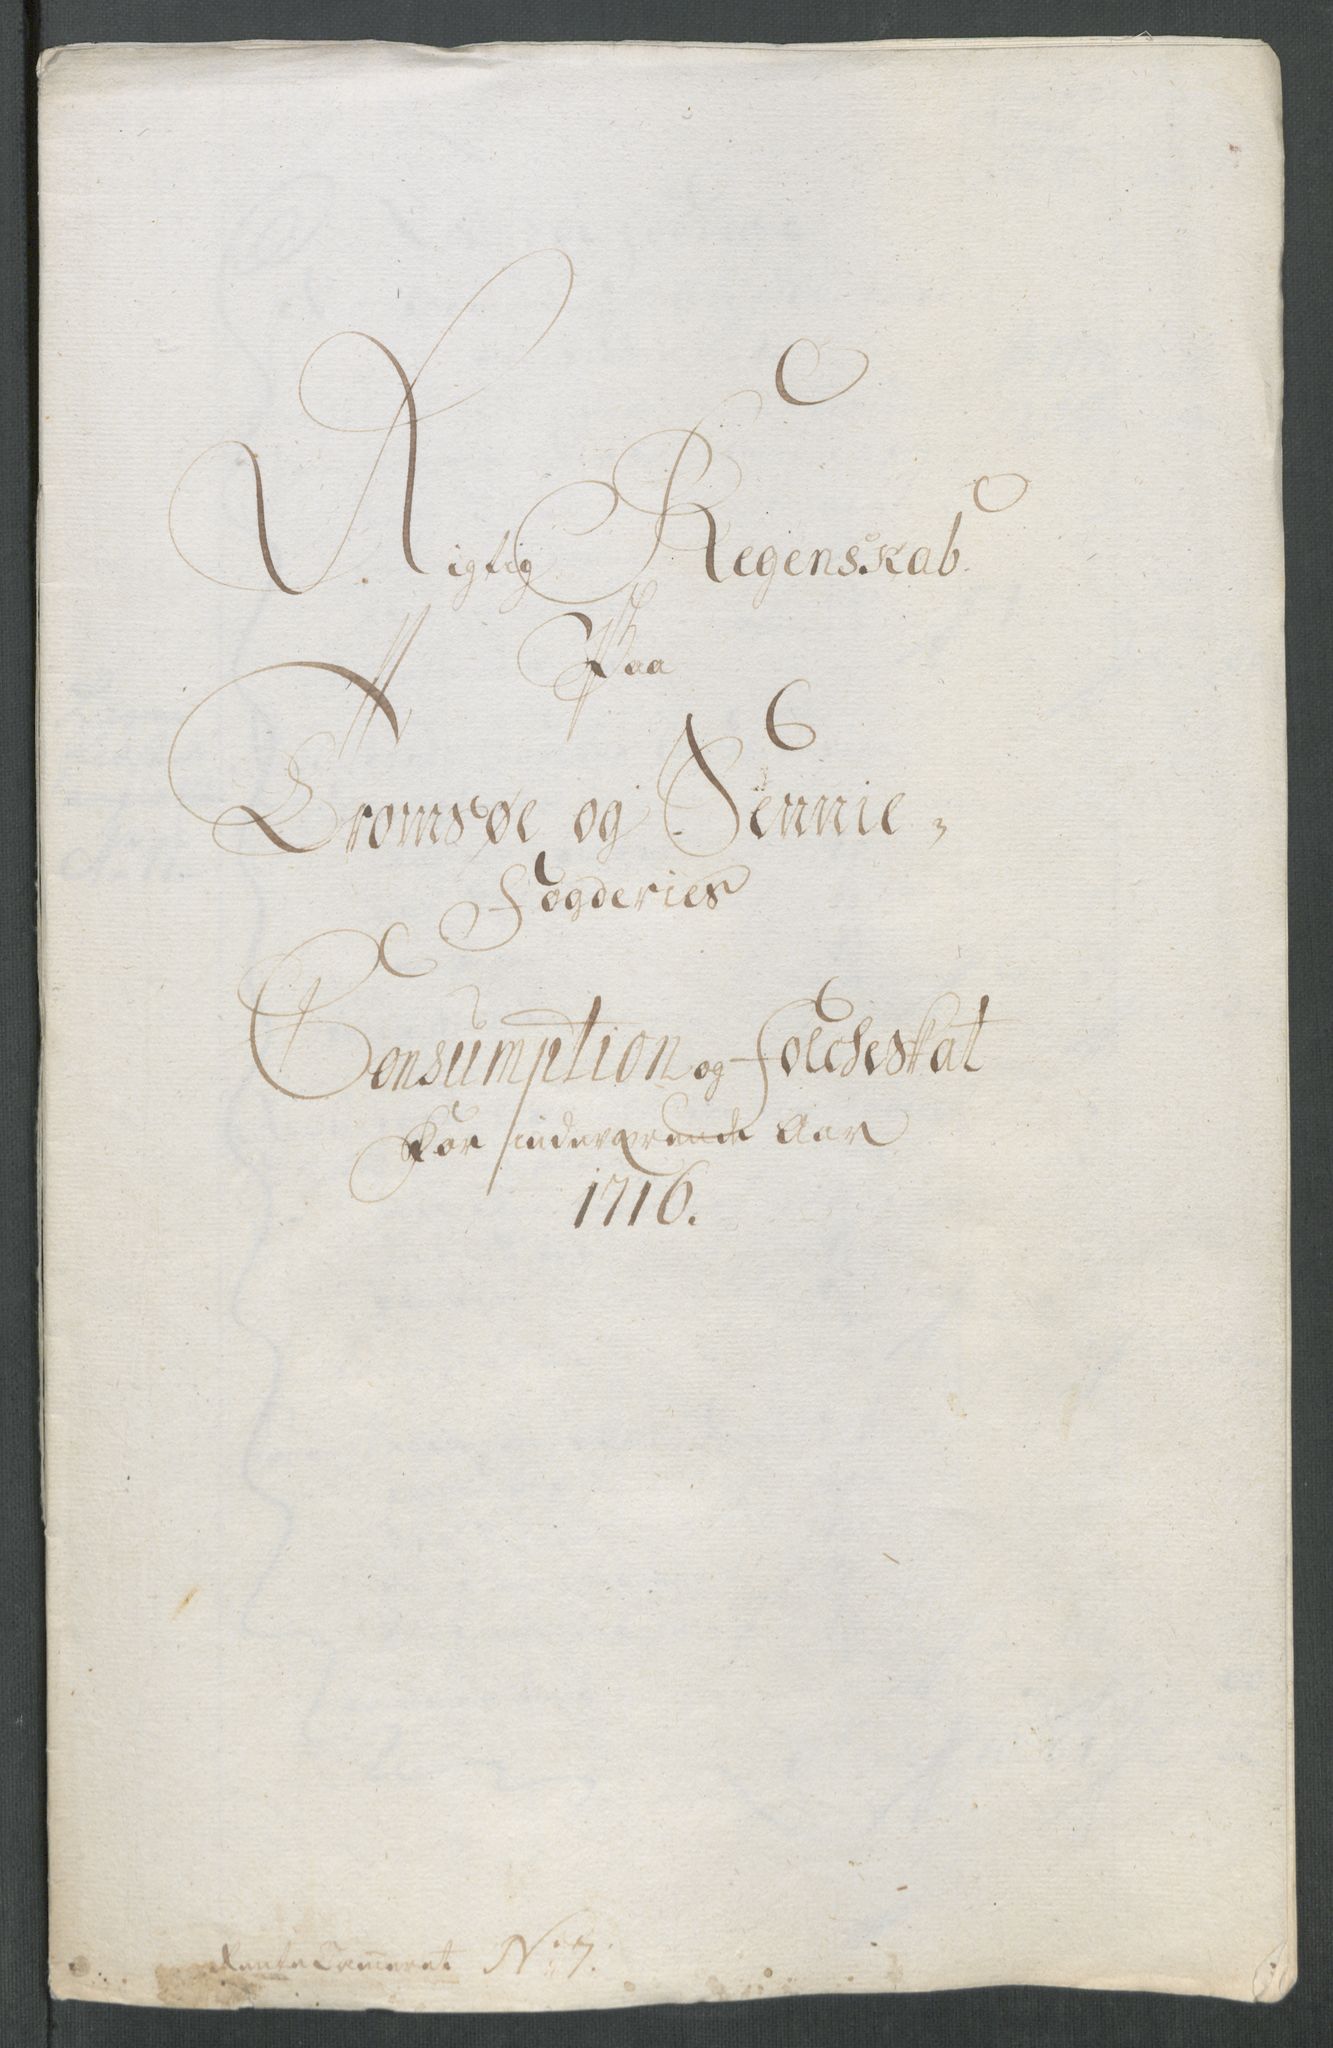 Rigtig Regenskab
Paa
Tromsøe og Sennie,
Fogderies
Consumption og Folcheskat
For indeværende Aar
1716.
Rente Cammeret No. 7.